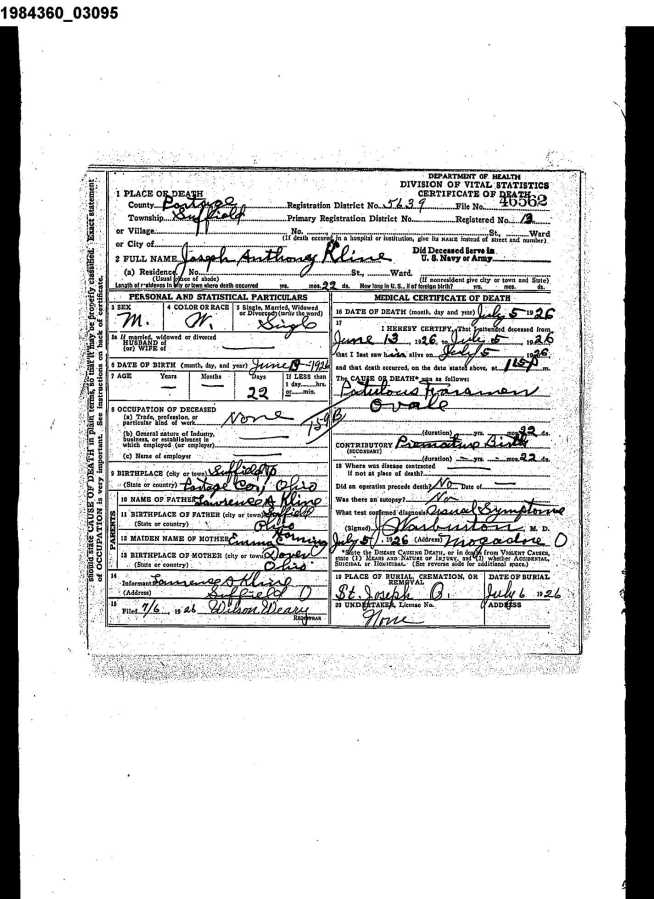 1984360_03095
DEPARTMENT OF HEALTH
DIVISION OF VITAL STATISTICS
CERTIFICATE OF DEATH
1 PLACE OF DEATH
County Portage Registration District No. 5639 File No. 46562
Township Suffield Primary Registration District No. Registered No. 13
or Village No. St., Ward
(If death occurred in a hospital or institution, give its NAME instead of street and number)
or City of
Did Deceased Serve in
U. S. Navy or Army
2 FULL NAME Joseph Anthony Kline
(a) Residence No. St., Ward.
(Usual place of abode) (If nonresident give city or town and State)
Length of residence in city or town where death occurred yrs. mos. 22 ds. How long in U. S., if of foreign birth? yrs. mos. ds.
PERSONAL AND STATISTICAL PARTICULARS
3 SEX
M.
4 COLOR OR RACE
W.
5 Single, Married, Widowed
or Divorced (write the word)
Single
5a If married, widowed or divorced
HUSBAND of
(or) WIFE of
6 DATE OF BIRTH (month, day, and year) June 13-1926
7 AGE Years Months Days If LESS than
1 day, hrs.
or min.
22
8 OCCUPATION OF DECEASED
(a) Trade, profession, or
particular kind of work None
(b) General nature of Industry,
business, or establishment in
which employed (or employer)
(c) Name of employer
9 BIRTHPLACE (city or town) Suffield
(State or country) Portage Co., Ohio
PARENTS
10 NAME OF FATHER Lawrence A Kline
11 BIRTHPLACE OF FATHER (city or town) Suffield
(State or country) Ohio
12 MAIDEN NAME OF MOTHER Emma
13 BIRTHPLACE OF MOTHER (city or town)
(State or country) Ohio
14
Informant Lawrence A Kline
(Address) Suffield O
15
Filed 7/6, 1926 Wilson Weary
REGISTRAR
MEDICAL CERTIFICATE OF DEATH
16 DATE OF DEATH (month, day and year) July 5 1926
17
I HEREBY CERTIFY, That I attended deceased from
June 13, 1926, to July 5, 1926
that I last saw him alive on July 5, 1926
and that death occurred, on the date stated above, at m.
The CAUSE OF DEATH* was as follows:
Patulous Foramen
Ovale
159B
(duration) yrs. mos. 22 ds.
CONTRIBUTORY Premature Birth
(SECONDARY)
(duration) yrs. mos. 22 ds.
18 Where was disease contracted
if not at place of death?
Did an operation precede death? No Date of
Was there an autopsy? No
What test confirmed diagnosis? Usual Symptoms
(Signed) Warburton, M. D.
July 5, 1926 (Address) Mogadore O
*State the DISEASE CAUSING DEATH, or in deaths from VIOLENT CAUSES,
state (1) MEANS AND NATURE OF INJURY, and (2) whether ACCIDENTAL,
SUICIDAL or HOMICIDAL. (See reverse side for additional space.)
19 PLACE OF BURIAL, CREMATION, OR
REMOVAL
St. Joseph O.
DATE OF BURIAL
July 6 1926
20 UNDERTAKER, License No.
None
ADDRESS